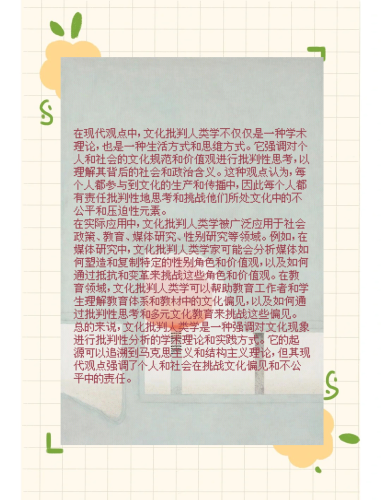 在现代观点中，文化批判人类学不仅仅是一种学术
理论，也是一种生活方式和思维方式。它强调对个
人和社会的文化规范和价值观进行批判性思考，以
理解其背后的社会和政治含义。这种观点认为，每
个人都参与到文化的生产和传播中，因此每个人都
有责任批判性地思考和挑战他们所处文化中的不
公平和压迫性元素。
在实际应用中，文化批判人类学被广泛应用于社会
政策、教育、媒体研究、性别研究等领域。例如，在
媒体研究中，文化批判人类学家可能会分析媒体如
何塑造和复制特定的性别角色和价值观，以及如何
通过抵抗和变革来挑战这些角色和价值观。在教
育领域，文化批判人类学可以帮助教育工作者和学
生理解教育体系和教材中的文化偏见，以及如何通
过批判性思考和多元文化教育来挑战这些偏见。
总的来说，文化批判人类学是一种强调对文化现象
进行批判性分析的学术理论和实践方式。它的起
源可以追溯到马克思主义和结构主义理论，但其现
代观点强调了个人和社会在挑战文化偏见和不公
平中的责任。